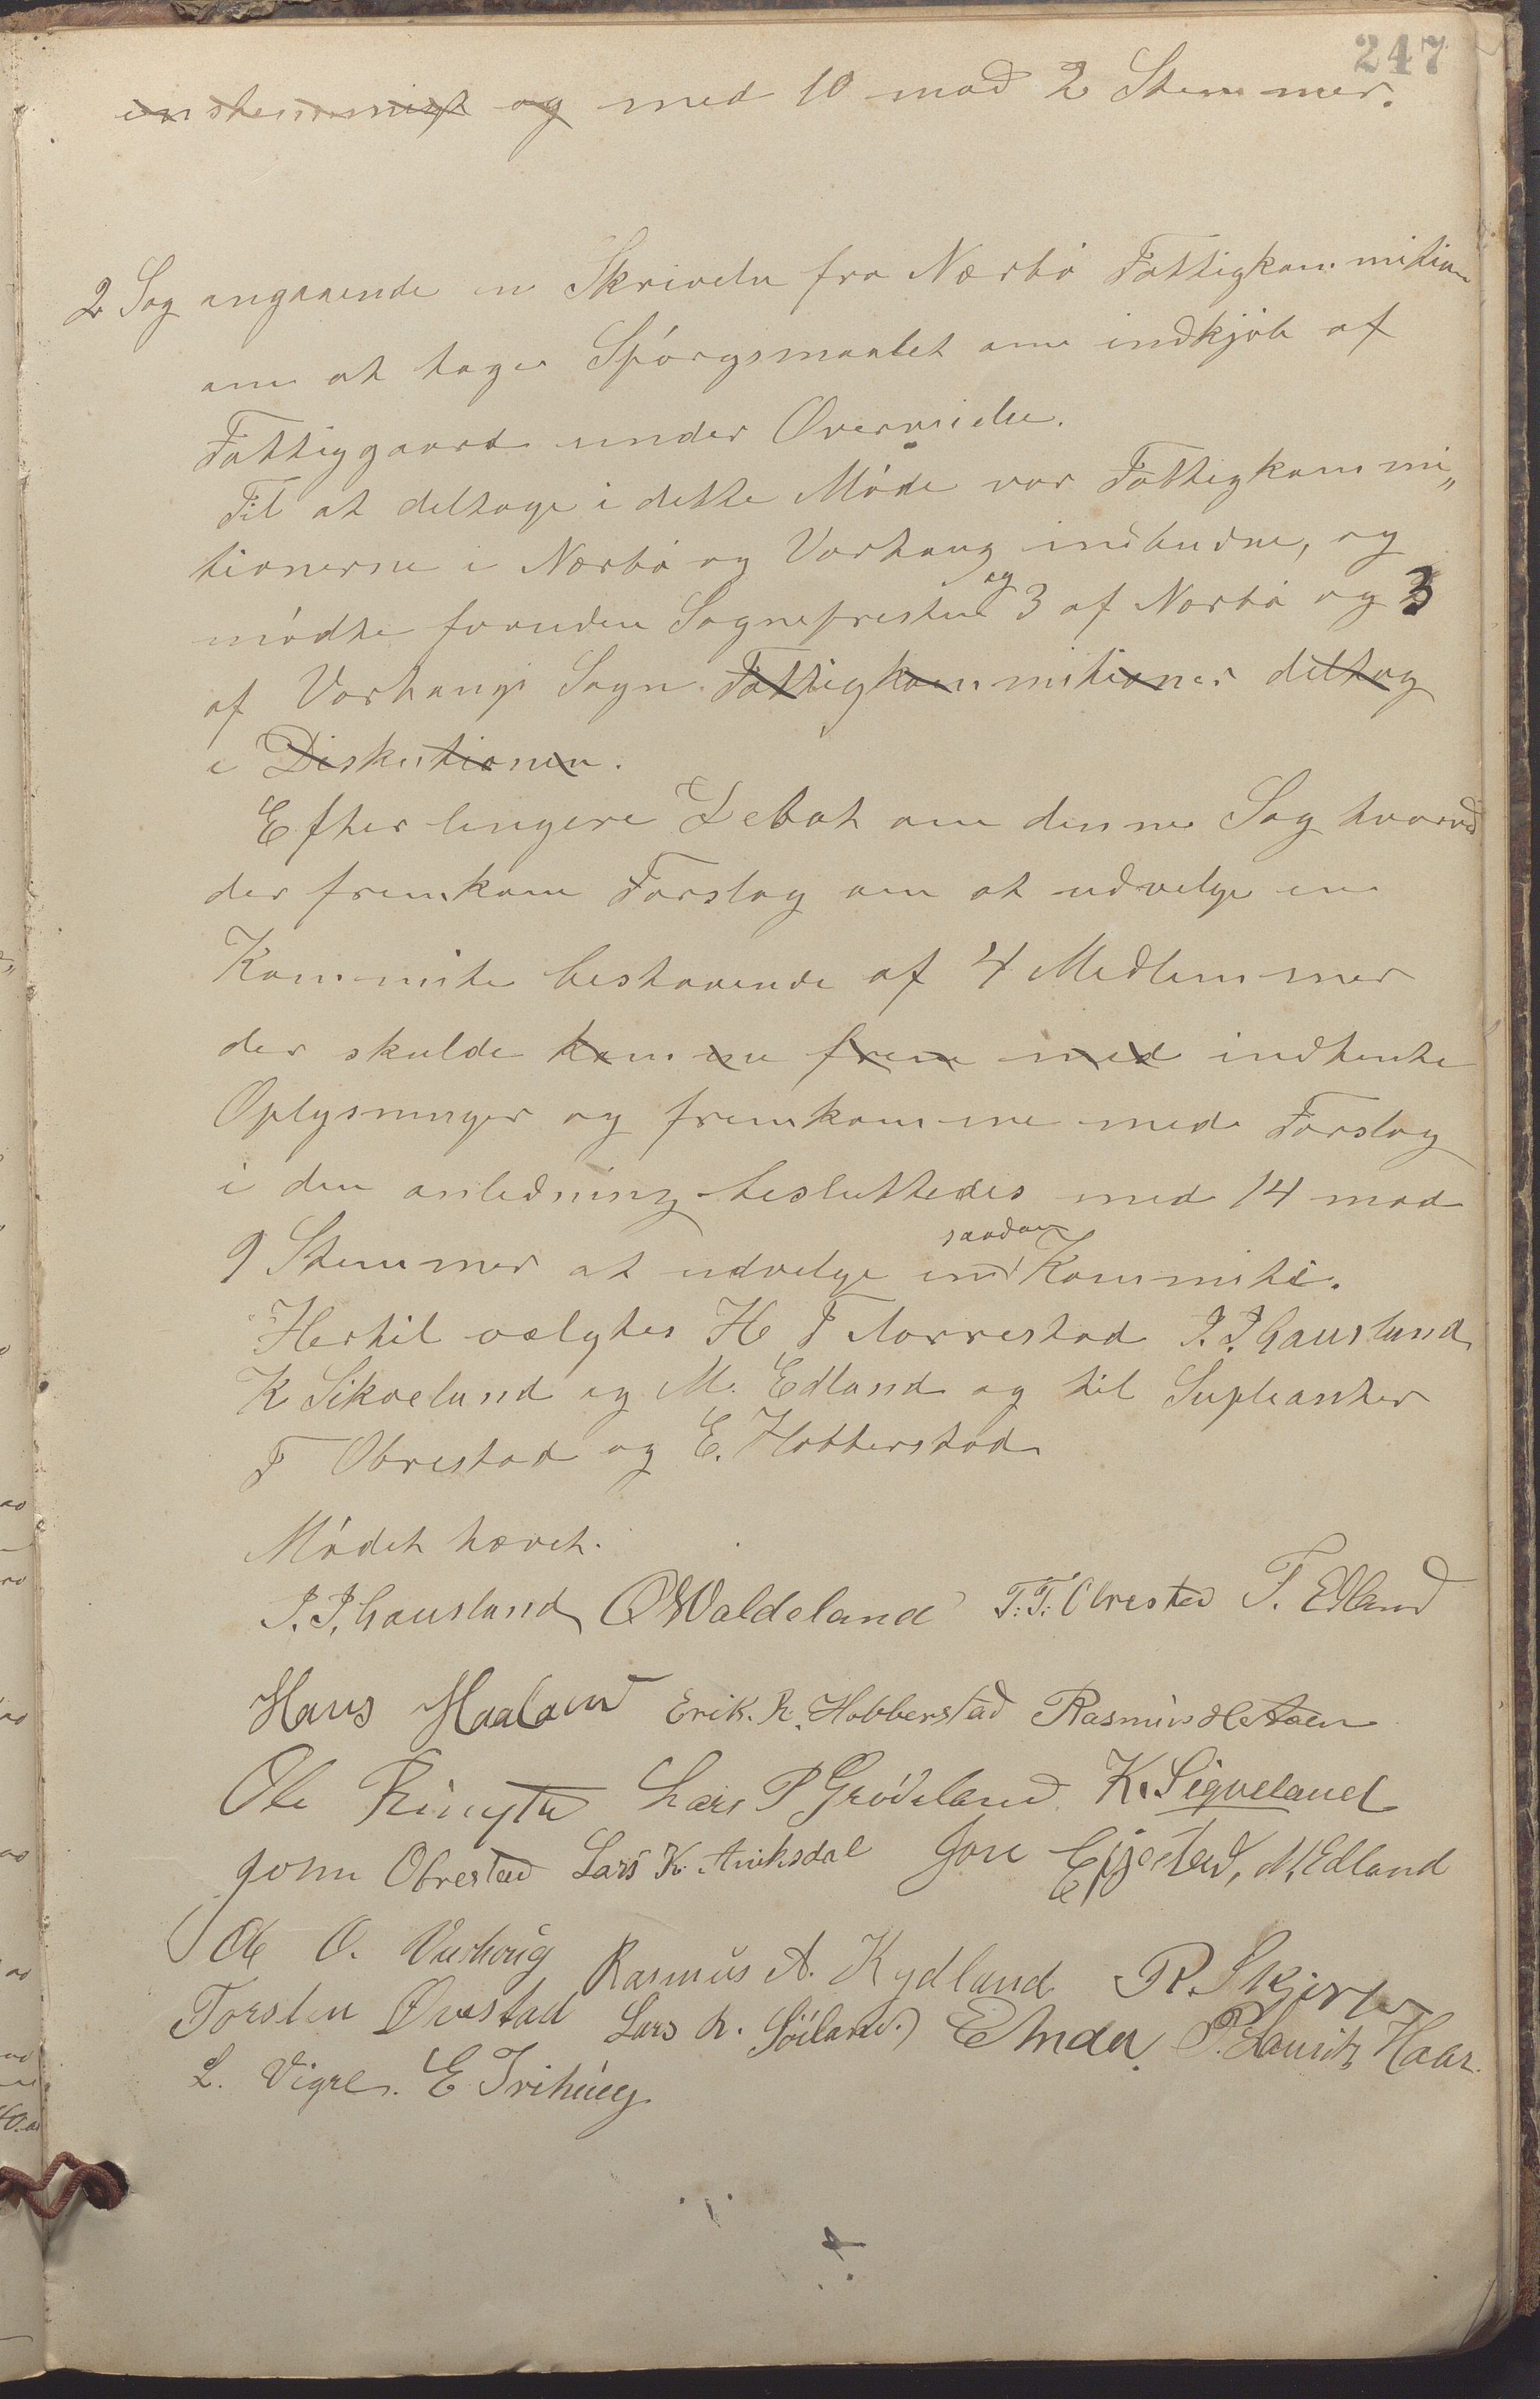 247
enstemmigt og med 10 mod 2 Stemmer.
2 Sag angaaende en Skrivelse fra Nærbø Fattigkommition
om at tage Spørgsmaalet om indkjøb af
Fattiggaard under Overveielse.
Til at deltage i dette Møde var Fattigkommi„
tionerne i Nærbø og Varhaug indbudne, og
mødte foruden Sognepresten og 3 af Nærbø og 3
af Varhaugs Sogn. Fattigkommitioner deltog
i Diskutionen.
Efter lengere Debat om denne Sag hvorved
der fremkom Forslag om at udvelge en
Kommite bestaaende af 4 Medlemmer
der skulde komme frem med indhente
Oplysninger og fremkomme med Forslag
i den anledning besluttedes med 14 mod
9 Stemmer at udvelge en saadan Kommite.
Hertil valgtes H T Norrestad J. J. Gausland
K Sikveland og M. Edland og til Supleanter
T Obrestad og E. Hobberstad
Mødet hævet.
J. J. Gausland O W Aldeland T. T. Obrestad T. Edland
Hans Haaland Erik. R. Hobberstad Rasmus
Ole Lars P Grødeland K. Siqveland
John Obrestad Lars K. Auksdal Jon M. Edland
Ole O. Varhoug Rasmus A. Kydland R. Skjerpe
Torsten Lars R. Søiland. P. Lauritz Haar.
L. Vigre.